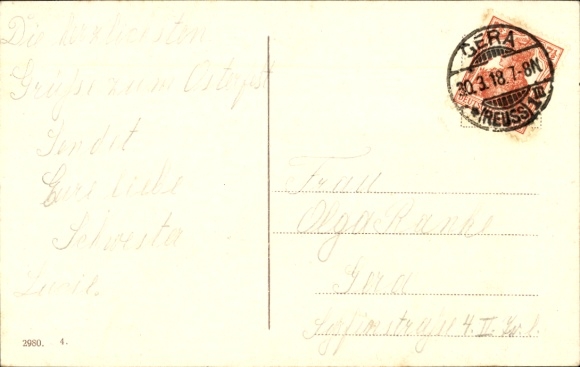 Die herzlichsten
Grüße zum Osterfest
Sendet
Eure liebe
Schwester
GERA
30.3.18.7-8N.
*(REUSS)1
Frau
Olga Ranke
Gera
4. II.
2980. 4.